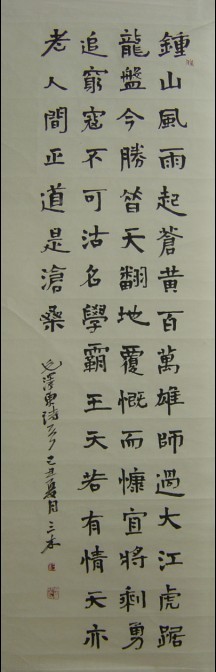 鍾山風雨起蒼黃百萬雄師過大江虎踞
龍盤今勝昔天翻地覆慨而慷宜將剩勇
追窮寇不可沽名學霸王天若有情天亦
老人間正道是滄桑
毛澤東詩 己丑夏月 三本